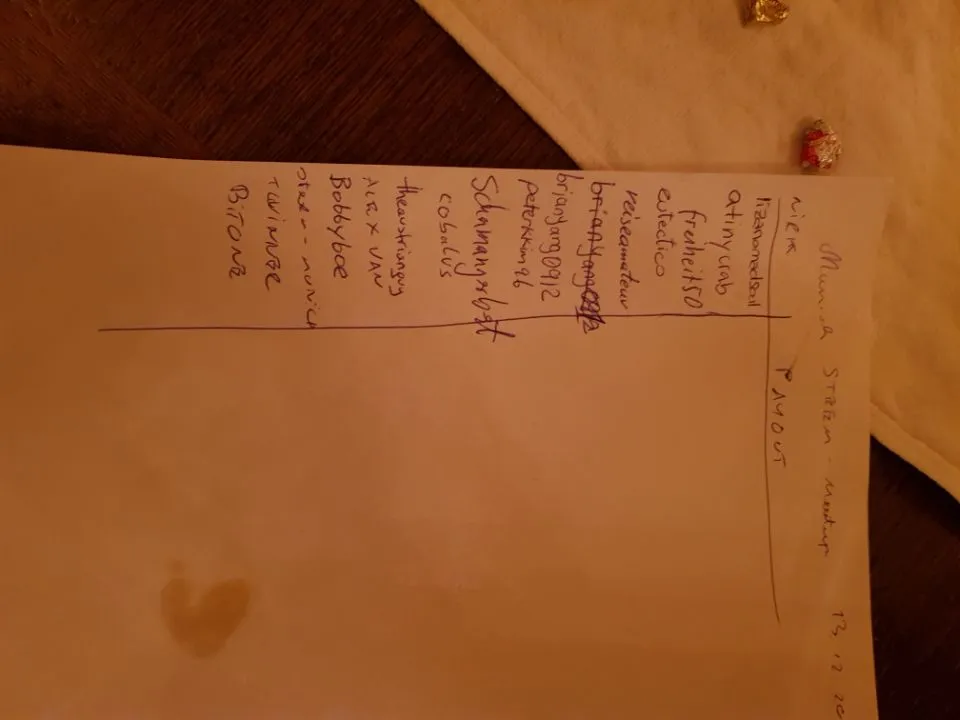 Munich STEEM - Meetup 13.12.20
NICK PAYOUT
lizanomadsoul
atinycrab
freiheit50
eutectico
reiseamateur
brianyang0912
brianyang0912
peterkim96
Schamangerbert
cobalus
theaustrianguy
ALEX VAN
Bobbyboe
steem-munich
TWINNER
BITONE